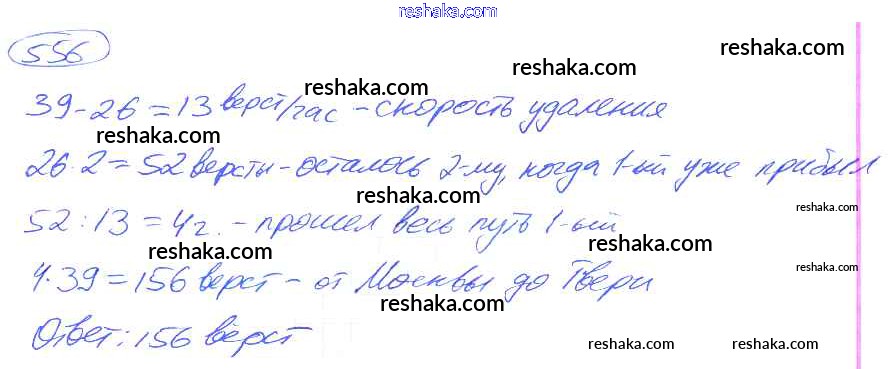 reshaka.com
556
reshaka.com
reshaka.com
reshaka.com
39-26=13 верст/час - скорость удаления
reshaka.com
26·2=52 версты - осталось 2-му, когда 1-ый уже прибыл
reshaka.com
reshaka.com
52:13=4г. - прошел весь путь 1-ый
reshaka.com
reshaka.com
reshaka.com
4·39=156 верст - от Москвы до Твери
reshaka.com
Ответ: 156 вёрст
reshaka.com
reshaka.com